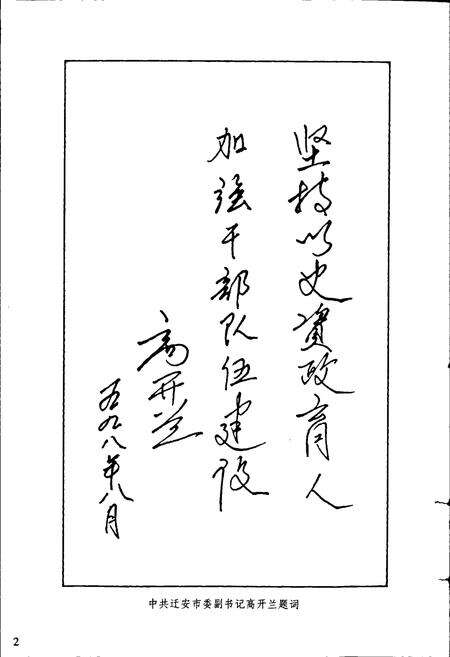 坚持以史资政育人
加强干部队伍建设
高开兰
九八年八月
中共迁安市委副书记高开兰题词
2